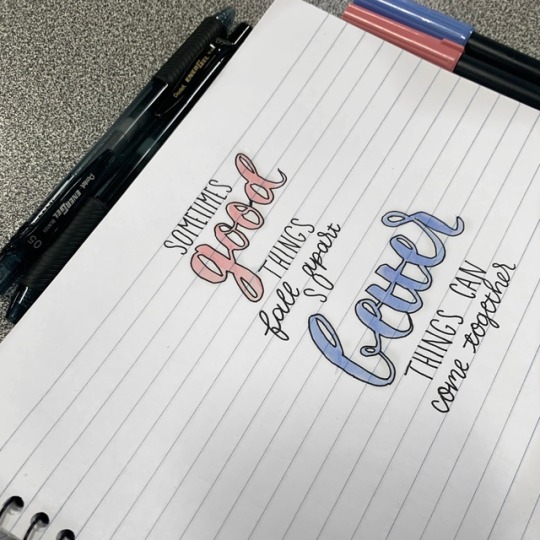 SOMTIMES
good
THINGS
fall apart
S
better
THINGS CAN
come together
Pentel ENERGEL
Pentel ENERGEL